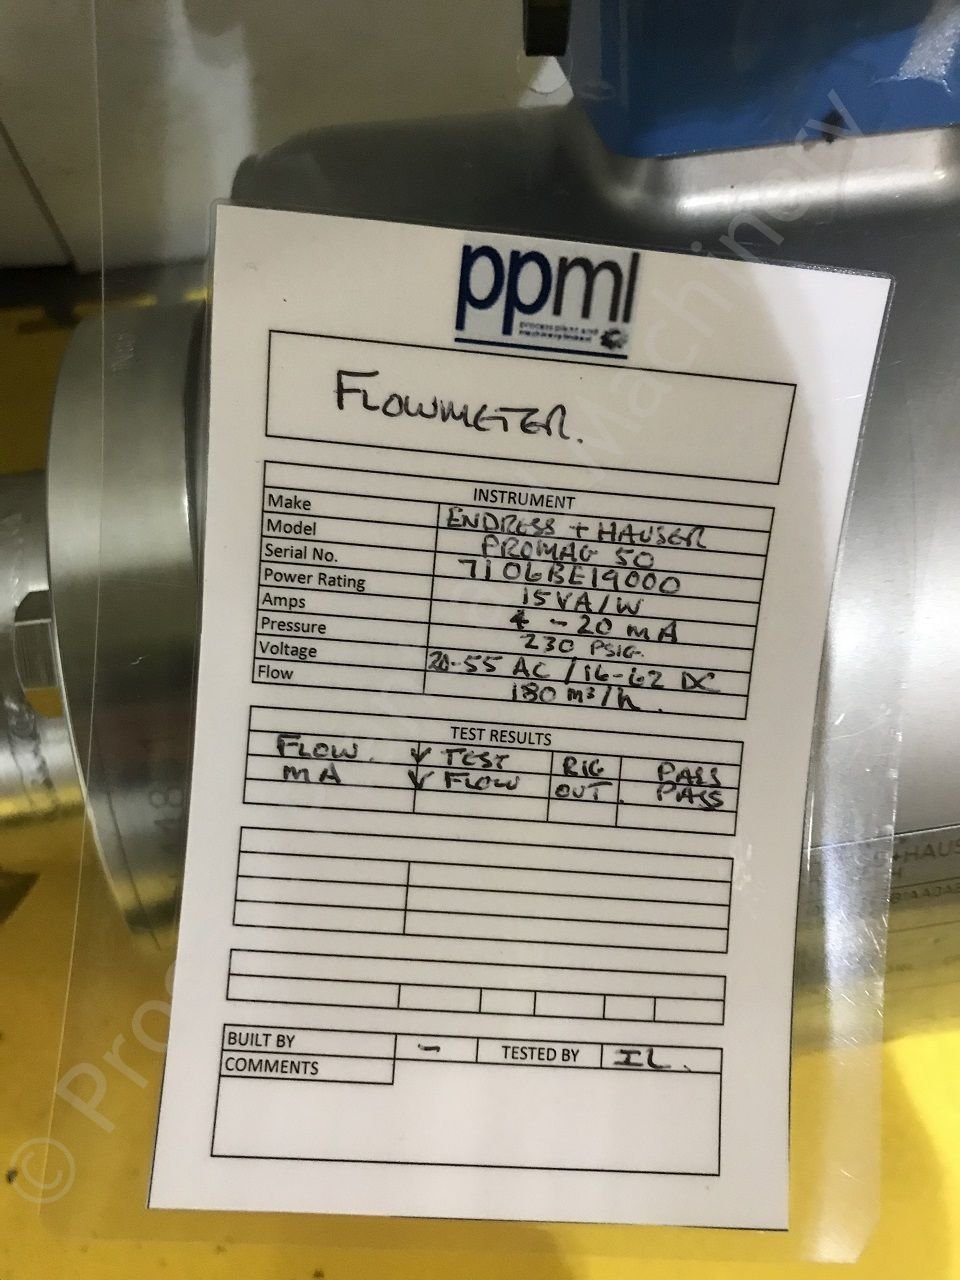 ppml
process plant and
machinery limited
FLOWMETER.
INSTRUMENT
Make ENDRESS + HAUSER
Model PROMAG 50
Serial No. 7106BE19000
Power Rating 15VA/W
Amps 4 - 20 mA
Pressure 230 PSIG.
Voltage 20-55 AC / 16-62 DC
Flow 180 m³/h.
TEST RESULTS
FLOW. ↓ TEST RIG PASS
mA ↓ FLOW OUT. PASS
BUILT BY - TESTED BY IL.
COMMENTS
+HAUS
© Machinery